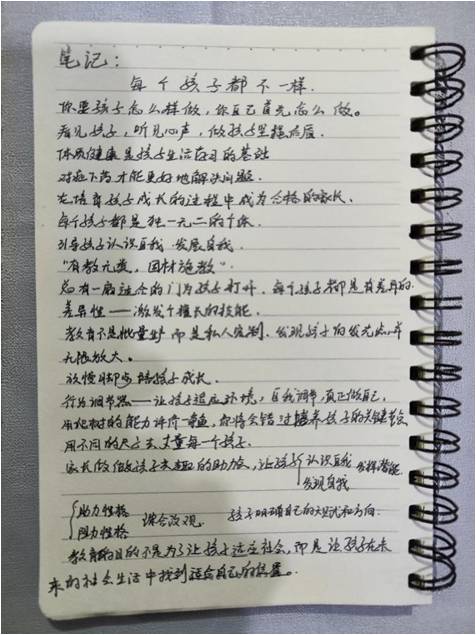 笔记：
每个孩子都不一样.
你要孩子怎么样做，你自己首先怎么做。
看见孩子，听见心声，做孩子坚强后盾.
体质健康是孩子生活学习的基础
对症下药才能更好地解决问题.
在培育孩子成长的过程中成为合格的家长.
每个孩子都是独一无二的个体.
引导孩子认识自我 发展自我.
“有教无类，因材施教”.
总有一扇适合的门为孩子打开，每个孩子都是有差异的.
差异性——激发个擅长的技能.
教育不是批量生产 而是私人定制，发现孩子的发光点，并
无限放大。
放慢脚步 陪孩子成长.
行为调节器——让孩子适应环境，自我调解，真正做自己.
用爬树的能力评价一条鱼，你将会错过培养孩子的关键节
用不同的尺子去丈量每一个孩子.
家长做孩子未来的助力，让孩子认识自我 发挥潜能.
发现自我
助力性格
阻力性格
综合改观 孩子明确自己的尝试和方向.
教育的目的不是为了让孩子适应社会，而是让孩子在未
来的社会生活中找到适合自己的位置。